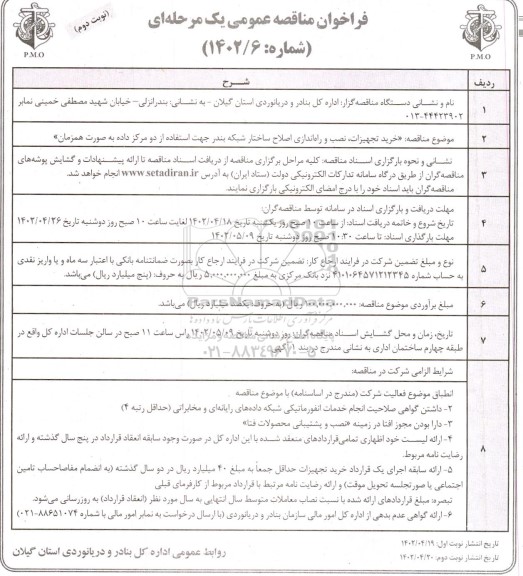 فراخوان مناقصه عمومی یک مرحله‌ای
(نوبت دوم)
(شماره: ۱۴۰۲/۶)
P.M.O
P.M.O
ردیف
شرح
۱
نام و نشانی دستگاه مناقصه‌گزار: اداره کل بنادر و دریانوردی استان گیلان - به نشانی: بندرانزلی- خیابان شهید مصطفی خمینی نمابر
۰۱۳-۴۴۴۲۳۹۰۲
۲
موضوع مناقصه: «خرید تجهیزات، نصب و راه‌اندازی اصلاح ساختار شبکه بندر جهت استفاده از دو مرکز داده به صورت همزمان»
۳
نشانی و نحوه بارگزاری اسناد مناقصه: کلیه مراحل برگزاری مناقصه از دریافت اسناد مناقصه تا ارائه پیشنهادات و گشایش پوشه‌های
مناقصه‌گران از طریق درگاه سامانه تدارکات الکترونیکی دولت (ستاد ایران) به آدرس www.setadiran.ir انجام خواهد شد.
مناقصه‌گران باید اسناد خود را با درج امضای الکترونیکی بارگزاری نمایند.
۴
مهلت دریافت و بارگزاری اسناد در سامانه توسط مناقصه‌گران:
تاریخ شروع و خاتمه دریافت اسناد: از ساعت ۱۰ صبح روز یکشنبه تاریخ ۱۴۰۲/۰۴/۱۸ لغایت ساعت ۱۰ صبح روز دوشنبه تاریخ ۱۴۰۲/۰۴/۲۶
مهلت بارگذاری اسناد: تا ساعت ۱۰:۳۰ صبح روز دوشنبه تاریخ ۱۴۰۲/۰۵/۰۹
۵
نوع و مبلغ تضمین شرکت در فرایند ارجاع کار: تضمین شرکت در فرایند ارجاع کار بصورت ضمانتنامه بانکی با اعتبار سه ماه و یا واریز نقدی
به حساب شماره ۴۱۰۱۰۶۴۵۷۱۲۱۲۳۴۵ نزد بانک مرکزی به مبلغ ۵,۰۰۰,۰۰۰,۰۰۰ ریال به حروف: (پنج میلیارد ریال) می‌باشد.
۶
مبلغ برآوردی موضوع مناقصه: ۱۰۰,۰۰۰,۰۰۰,۰۰۰ ریال (به حروف: یکصد میلیارد ریال) می‌باشد.
۷
تاریخ، زمان و محل گشایش اسناد مناقصه‌گران: روز دوشنبه تاریخ ۱۴۰۲/۰۵/۰۹ راس ساعت ۱۱ صبح در سالن جلسات اداره کل واقع در
طبقه چهارم ساختمان اداری به نشانی مندرج در بند ۱ آگهی
۰۲۱-۸۸۳۴۹۶۷۰-۵
۸
شرایط الزامی شرکت در مناقصه:
انطباق موضوع فعالیت شرکت (مندرج در اساسنامه) با موضوع مناقصه
۲- داشتن گواهی صلاحیت انجام خدمات انفورماتیکی شبکه داده‌های رایانه‌ای و مخابراتی (حداقل رتبه ۴)
۳- دارا بودن مجوز افتا در زمینه «نصب و پشتیبانی محصولات فتا»
۴- ارائه لیست خود اظهاری تمامی قراردادهای منعقد شده با این اداره کل در صورت وجود سابقه انعقاد قرارداد در پنج سال گذشته و ارائه
رضایت نامه مربوط.
۵- ارائه سابقه اجرای یک قرارداد خرید تجهیزات حداقل جمعاً به مبلغ ۴۰ میلیارد ریال در دو سال گذشته (به انضمام مفاصاحساب تامین
اجتماعی یا صورتجلسه تحویل موقت) و ارائه رضایت نامه مرتبط با قرارداد مربوط از کارفرمای قبلی
تبصره: مبلغ قراردادهای ارائه شده با نسبت نصاب معاملات متوسط سال انتهایی به سال مورد نظر (انعقاد قرارداد) به روزرسانی می‌شود.
۶- ارائه گواهی عدم بدهی از اداره کل امور مالی سازمان بنادر و دریانوردی (با ارسال درخواست به نمابر امور مالی با شماره ۸۸۶۵۱۰۷۴-۰۲۱)
تاریخ انتشار نوبت اول: ۱۴۰۲/۰۴/۱۹
تاریخ انتشار نوبت دوم: ۱۴۰۲/۰۴/۲۰
روابط عمومی اداره کل بنادر و دریانوردی استان گیلان